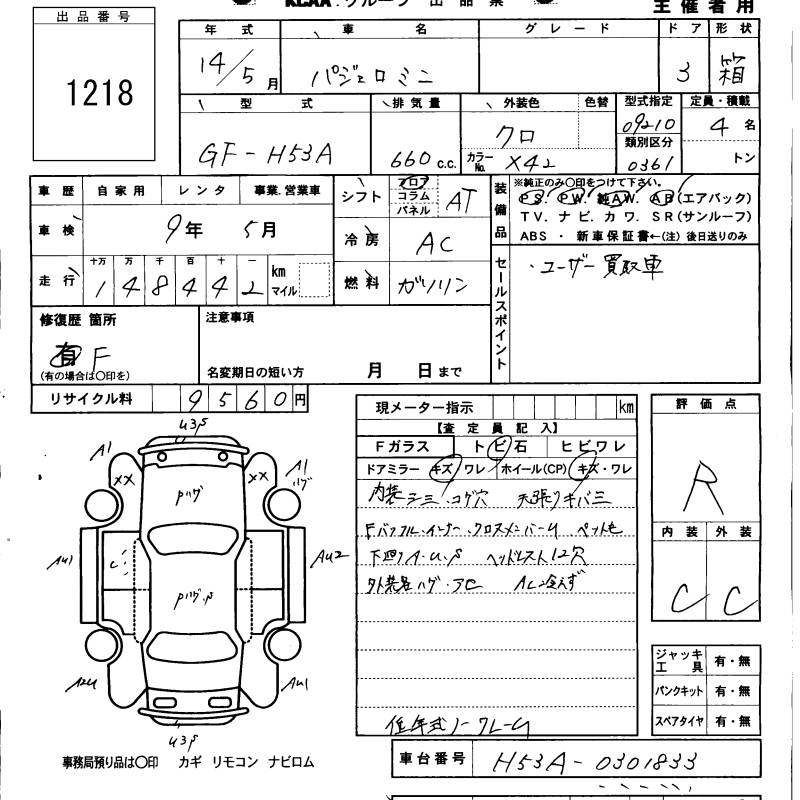 KCAA.グループ 出品票
主催者用
出品番号
1218
年式 車名 グレード ドア 形状
14/5月 パジェロミニ 3 箱
型式 排気量 外装色 色替 型式指定 定員・積載
GF-H53A 660c.c. クロ 09210 4名
カラーNo. X42 類別区分 0361 トン
車歴 自家用 レンタ 事業.営業車
車検 9年 5月
走行 十万 万 千 百 十 一 km マイル
148442
シフト フロア コラム パネル AT
冷房 AC
燃料 ガソリン
装備品 ※純正のみ〇印をつけて下さい。
PS. PW. 純AW. AB(エアバック)
TV. ナビ. カワ. SR(サンルーフ)
ABS ・ 新車保証書←(注) 後日送りのみ
セールスポイント
・ユーザー買取車
修復歴 箇所
有 F
(有の場合は〇印を)
注意事項
名変期日の短い方 月 日まで
リサイクル料 9560円
現メーター指示 km
【査定員記入】
Fガラス トビ石 ヒビワレ
ドアミラー キズ/ワレ ホイール(CP) キズ・ワレ
内装シミ・コゲ穴 天張りキバミ
Fバッフル.インナー.クロスメンバーU
下回りA.U.S ヘッドレスト12穴
外装色ハゲ・アセ AC冷えず
低年式ノークレーム
評価点
R
内装 外装
C C
ジャッキ工具 有・無
パンクキット 有・無
スペアタイヤ 有・無
U3S
A1 XX XX A1 ハゲ
Pハゲ
AU1 AU2
Pハゲ.S
A2U AU1
U3S
事務局預り品は〇印 カギ リモコン ナビロム
車台番号 H53A-0301833